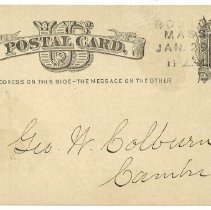 BOSTON
MASS
JAN. 2
POSTAL CARD.
US
ADDRESS ON THIS SIDE - THE MESSAGE ON THE OTHER
11 A
Geo. W. Colburn
Camb